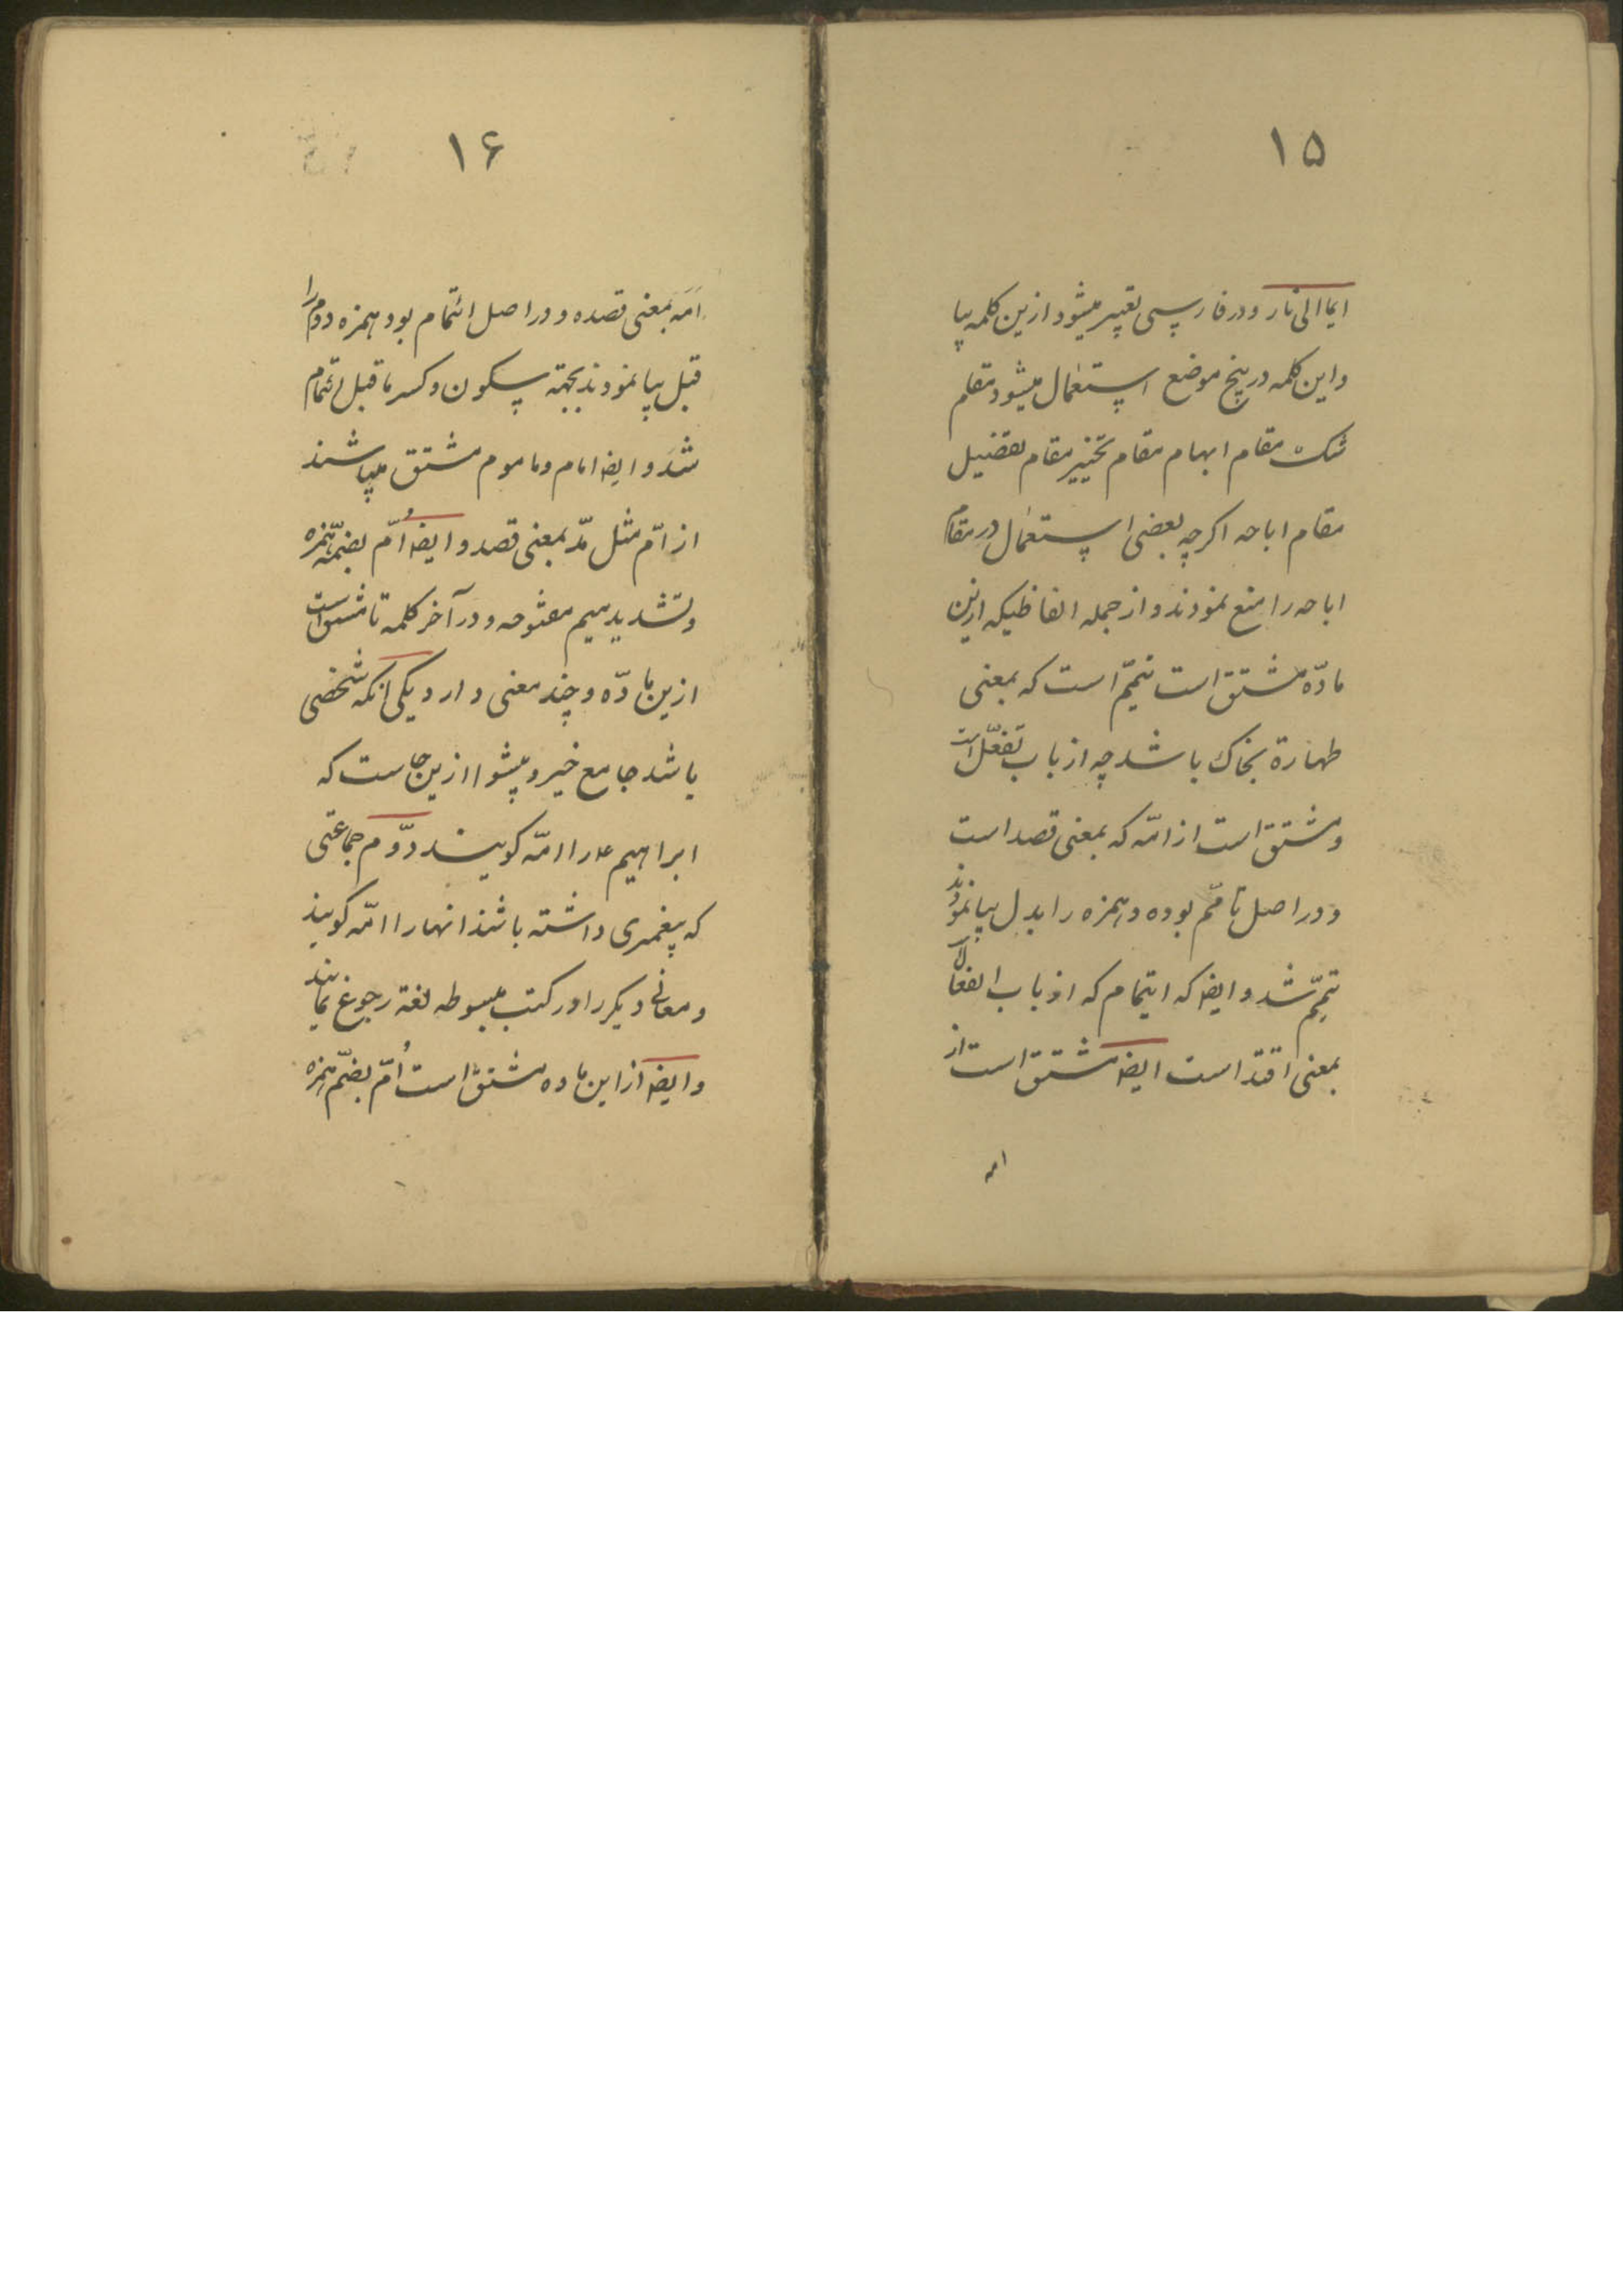 ۱۵
ایما الی نار و در فارسی تعبیر میشود ازین کلمه بیا
و این کلمه در پنج موضع استعمال میشود مقام
شک مقام ابهام مقام تخییر مقام تفضیل
مقام اباحه اکرچه بعضی استعمال در مقام
اباحه را منع نمودند و از جمله الفاظیکه ازین
مادّه مشتق است تیمّم است که بمعنی
طهارة بخاک باشد چه از باب تفعّل است
و مشتق است از امّه که بمعنی قصد است
و در اصل تامّم بوده و همزه را بدل بیا نمودند
تیمّم شد و ایضا که ایتمام که از باب افتعال
بمعنی اقتد است ایضا مشتق است از
امه
۱۶
اَمَه بمعنی قصده و در اصل ائتمام بود همزه دوم را
قبل بیا نمودند بجهة سکون و کسر ماقبل
شد و ایضا امام و ماموم مشتق میباشند
از امّ مثل مدّ بمعنی قصد و ایضا اُمّ بضمّه همزه
و تشدید میم مفتوحه و در آخر کلمه تا مشتق است
ازین مادّه و چند معنی دارد یکی انکه شخصی
باشد جامع خیر و پیشوا ازین جاست که
ابراهیم ع را امّه کویند دوّم جماعتی
که پیغمبری داشته باشند انها را امّه کویند
و معانی دیکر را در کتب مبسوطه لغة رجوع نمایند
و ایضا از این ماده مشتق است اُمّ بضمّ همزه